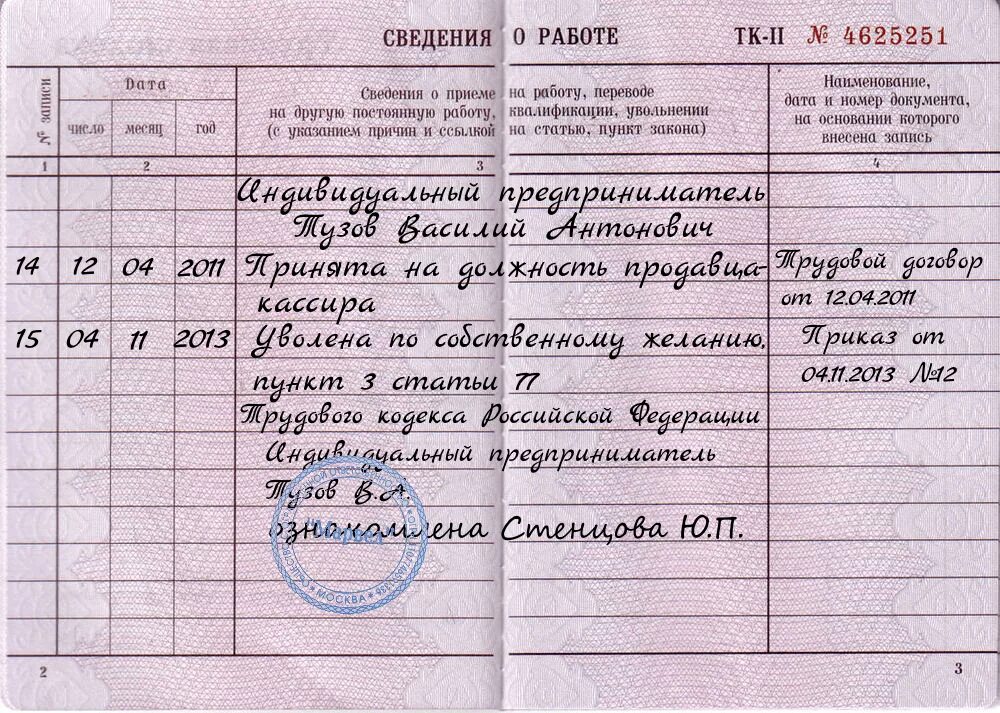 СВЕДЕНИЯ О РАБОТЕ ТК-II № 4625251
№ записи
Дата
число месяц год
Сведения о приеме на работу, переводе
на другую постоянную работу, квалификации, увольнении
(с указанием причин и ссылкой на статью, пункт закона)
Наименование,
дата и номер документа,
на основании которого
внесена запись
1 2 3 4
Индивидуальный предприниматель
Тузов Василий Антонович
14 12 04 2011 Принята на должность продавца- Трудовой договор
кассира от 12.04.2011
15 04 11 2013 Уволена по собственному желанию, Приказ от
пункт 3 статьи 77 04.11.2013 №12
Трудового кодекса Российской Федерации
Индивидуальный предприниматель
Тузов В.А.
ознакомлена Стенцова Ю.П.
МОСКВА
2 3